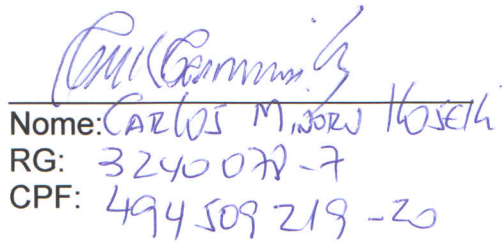 Nome: CARLOS MINORU KOSEKI
RG: 3240078-7
CPF: 494509219-20